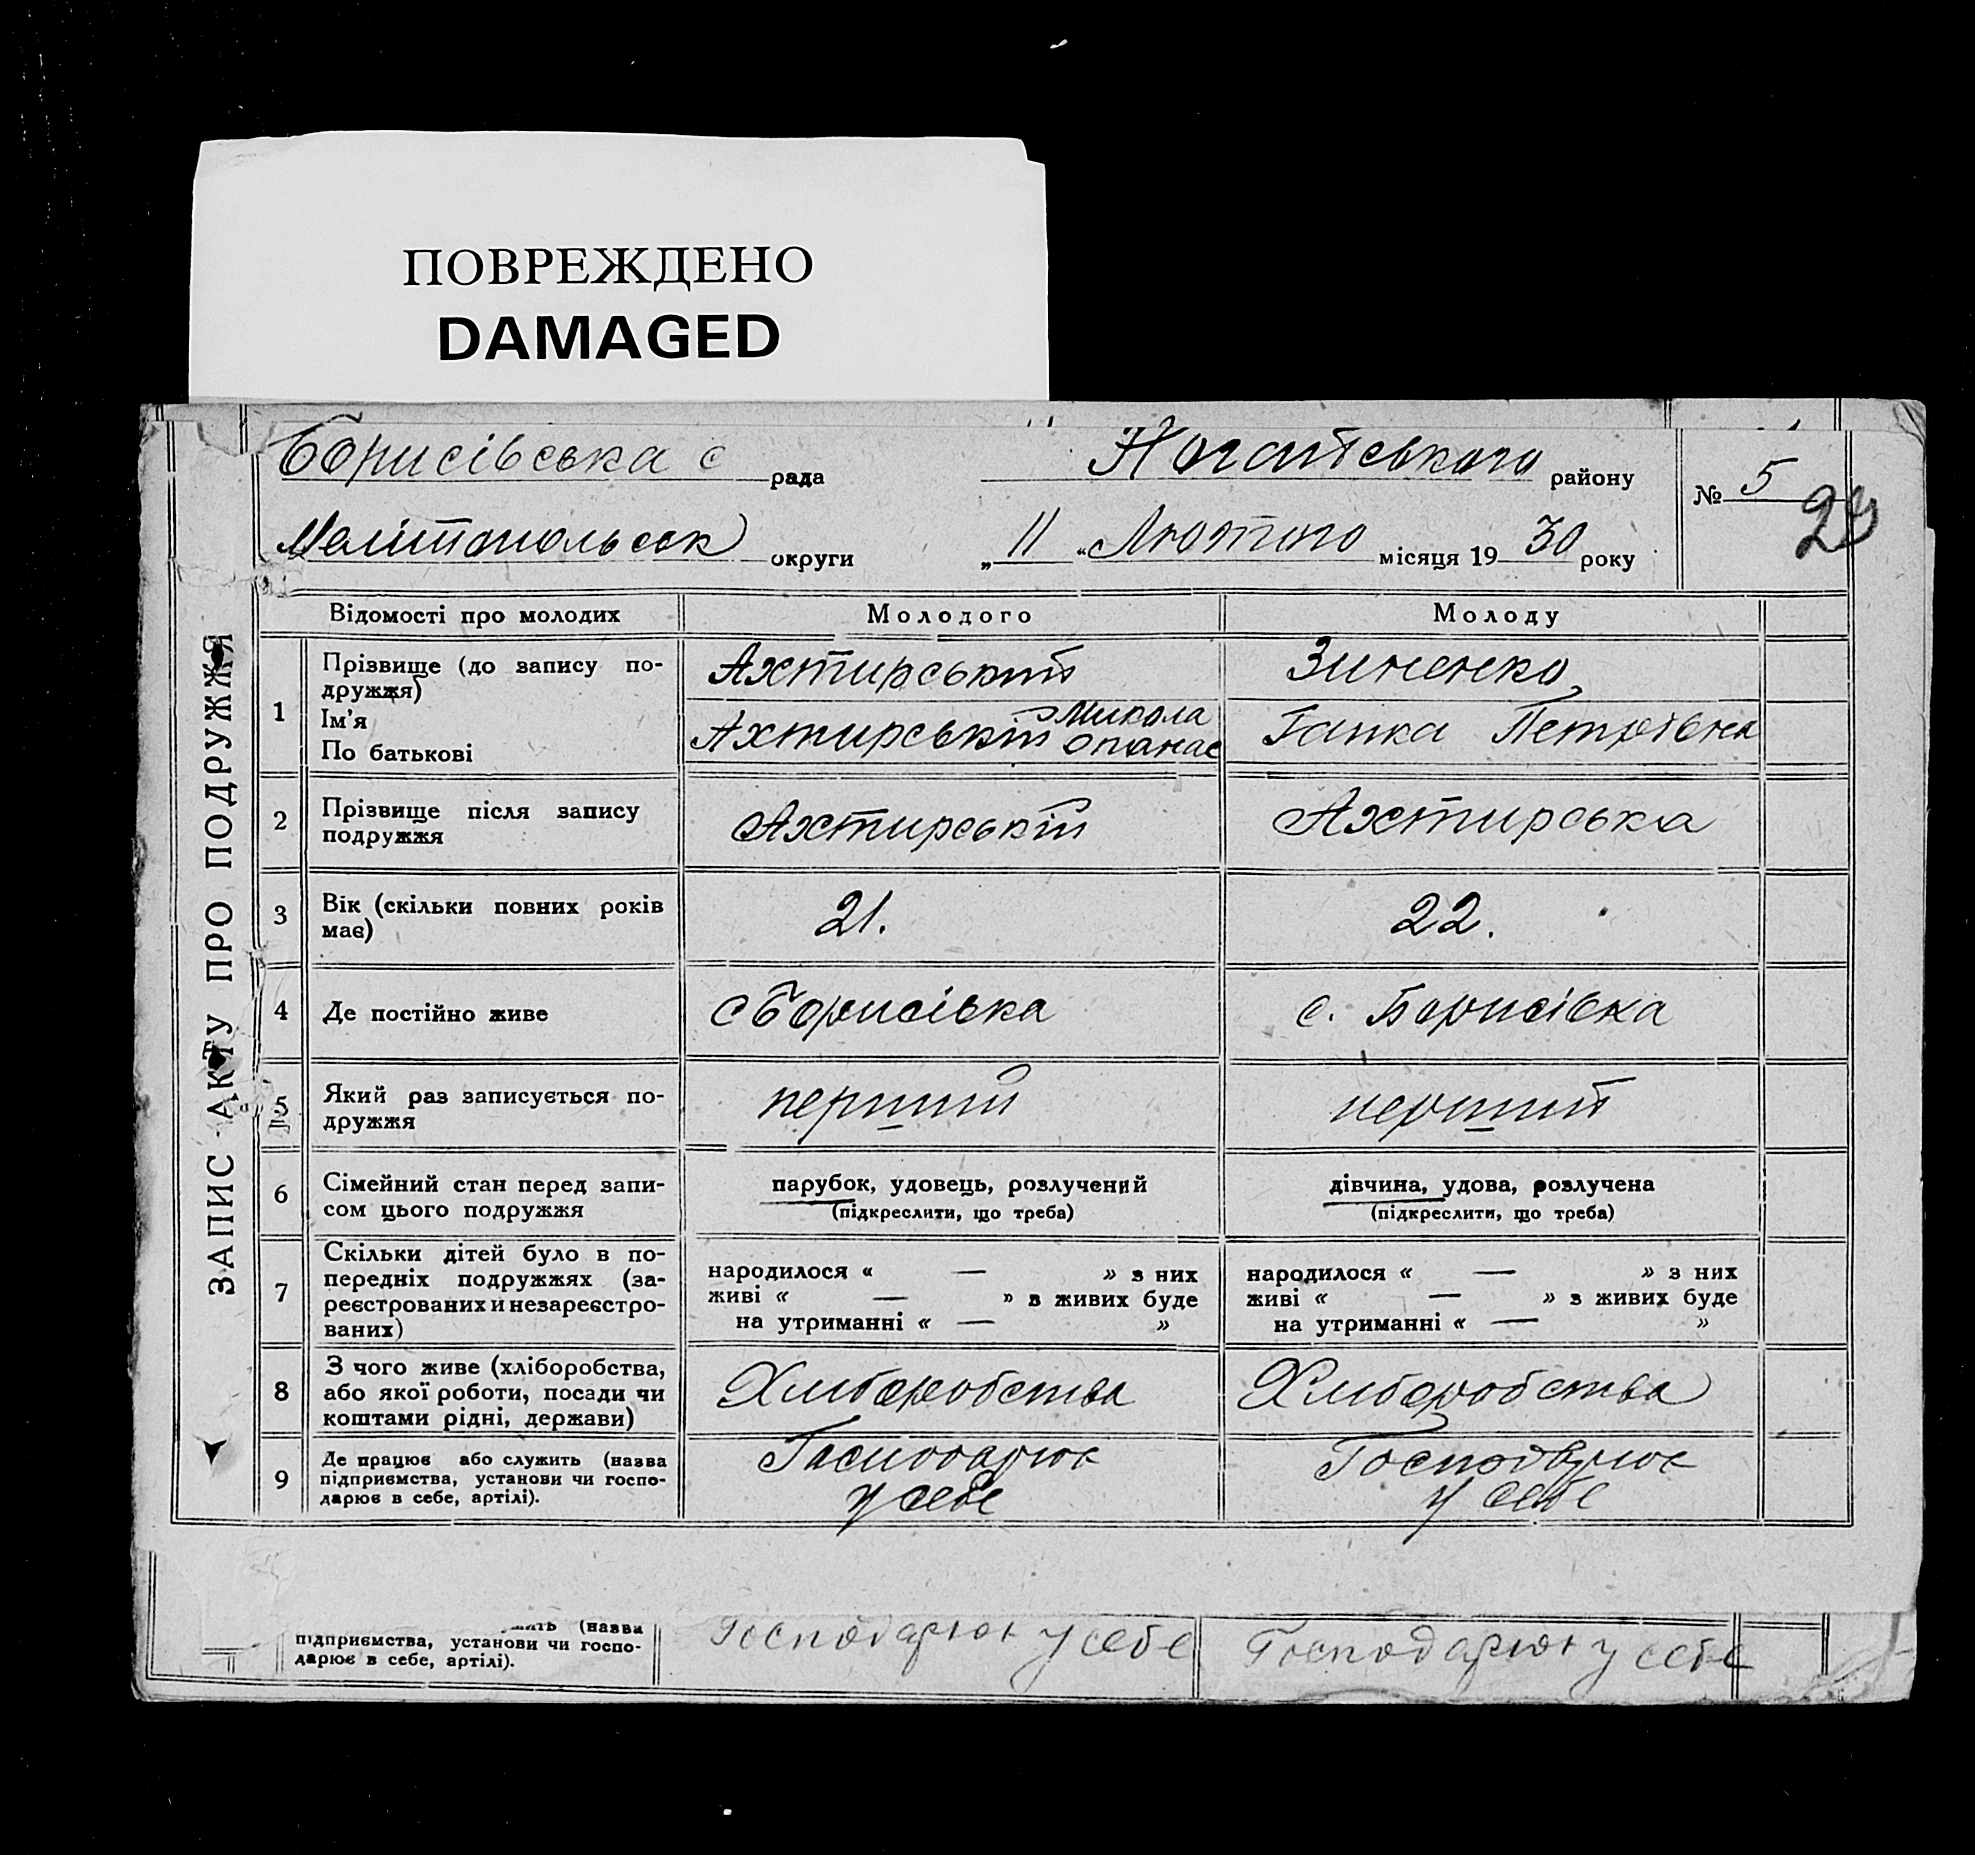 ПОВРЕЖДЕНО
DAMAGED
Борисівська с рада Ногайського району № 5
29
Мелітопольськ округи „ 11 “ Лютого місяця 19 30 року
ЗАПИС АКТУ ПРО ПОДРУЖЖЯ
Відомості про молодих Молодого Молоду
1 Прізвище (до запису по-
дружжя) Ахтирський Зиненко
Ім'я Микола
По батькові Ахтирській Опанас Ганка Петрівна
2 Прізвище після запису
подружжя Ахтирській Ахтирська
3 Вік (скільки повних років
має) 21. 22.
4 Де постійно живе с Борисівка с. Борисівка
5 Який раз записується по-
дружжя перший перший
6 Сімейний стан перед запи-
сом цього подружжя
парубок, удовець, розлучений дівчина, удова, розлучена
(підкреслити, що треба) (підкреслити, що треба)
7 Скільки дітей було в по-
передніх подружжях (за-
реєстрованих и незареєстро-
ваних)
народилося « — » з них народилося « — » з них
живі « — » з живих буде живі « — » з живих буде
на утриманні « — » на утриманні « — »
8 З чого живе (хліборобства,
або якої роботи, посади чи
коштами рідні, держави) Хлиборобства Хлиборобства
9 Де працює або служить (назва
підприємства, установи чи госпо-
дарює в себе, артілі).
Господарює Господарює
у себе у себе
(назва
підприємства, установи чи госпо-
дарює в себе, артілі). Господарює у себе Господарює у себе